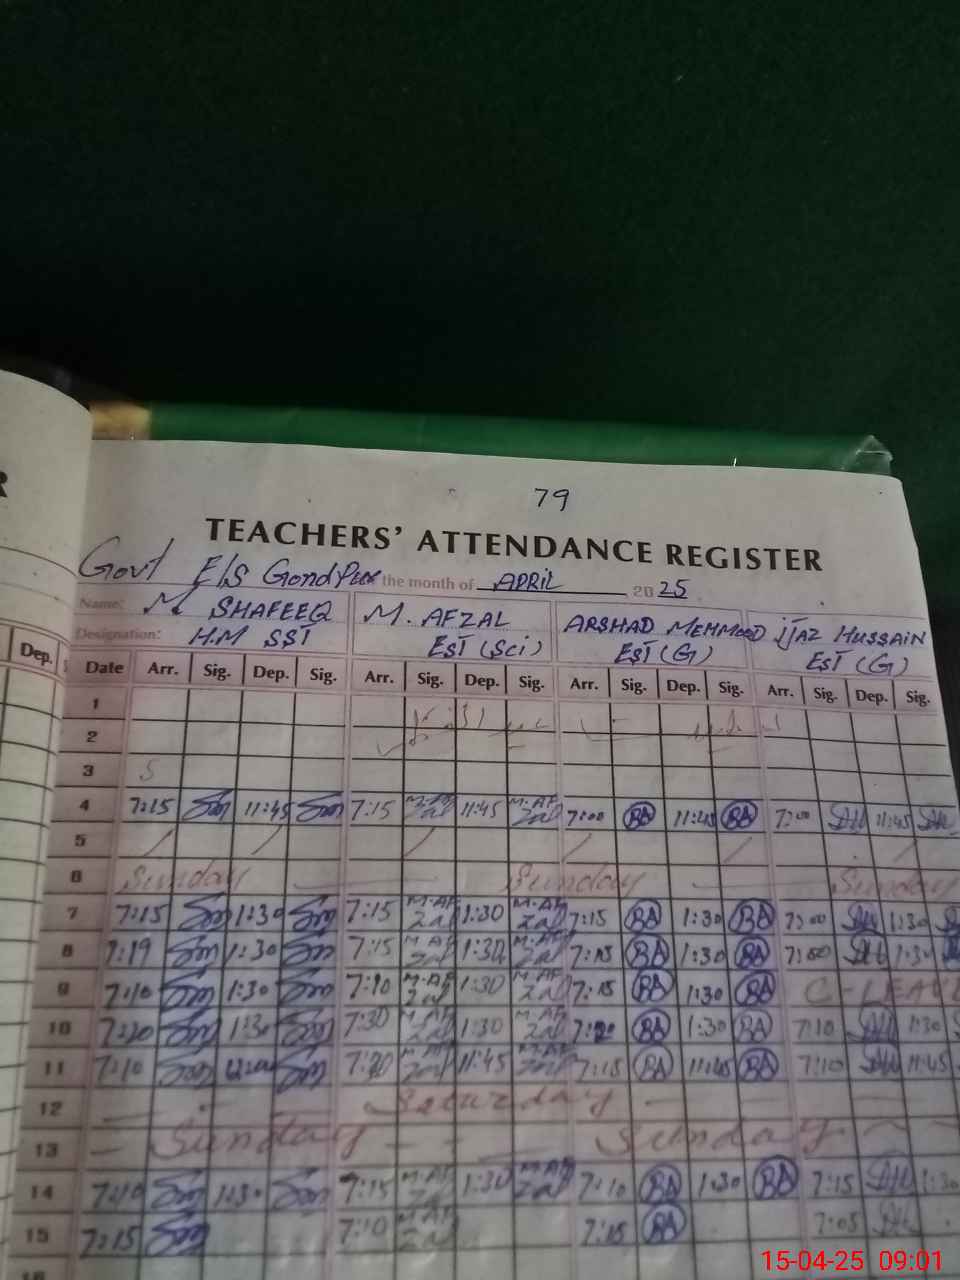 R
79
TEACHERS' ATTENDANCE REGISTER
Govt E/S GondPur the month of APRIL 2025
Name: M. SHAFEEQ M. AFZAL ARSHAD MEHMOOD IJAZ HUSSAIN
Designation: H.M SST EST (Sci) EST (G) EST (G)
Dep.
Date Arr. Sig. Dep. Sig. Arr. Sig. Dep. Sig. Arr. Sig. Dep. Sig. Arr. Sig. Dep. Sig.
1
2
3
4 7:15 11:45 7:15 M.AF Zal 11:45 M.AF Zal 7:00 BA 11:45 BA 7:00 11:45
5
6 Sunday Sunday Sunday
7 7:15 1:30 7:15 M.AF Zal 1:30 M.AF Zal 7:15 BA 1:30 BA 7:00 1:30
8 7:19 1:30 7:15 M.AF Zal 1:30 M.AF Zal 7:15 BA 1:30 BA 1:30
9 7:10 1:30 7:10 M.AF Zal 1:30 M.AF Zal 7:15 BA 1:30 BA C-LEAVE
10 1:30 7:30 M.AF Zal 1:30 M.AF Zal BA 1:30 BA 7:10 1:30
11 7:10 M.AF Zal 11:45 M.AF Zal 7:15 BA 11:45 BA 7:10 11:45
12 Saturday
13 Sunday Sunday
14 7:10 1:30 7:15 M.AF Zal 1:30 M.AF Zal 7:10 BA 1:30 BA 7:15 1:30
15 7:15 7:10 M.AF Zal 7:15 BA 7:05
15-04-25 09:01